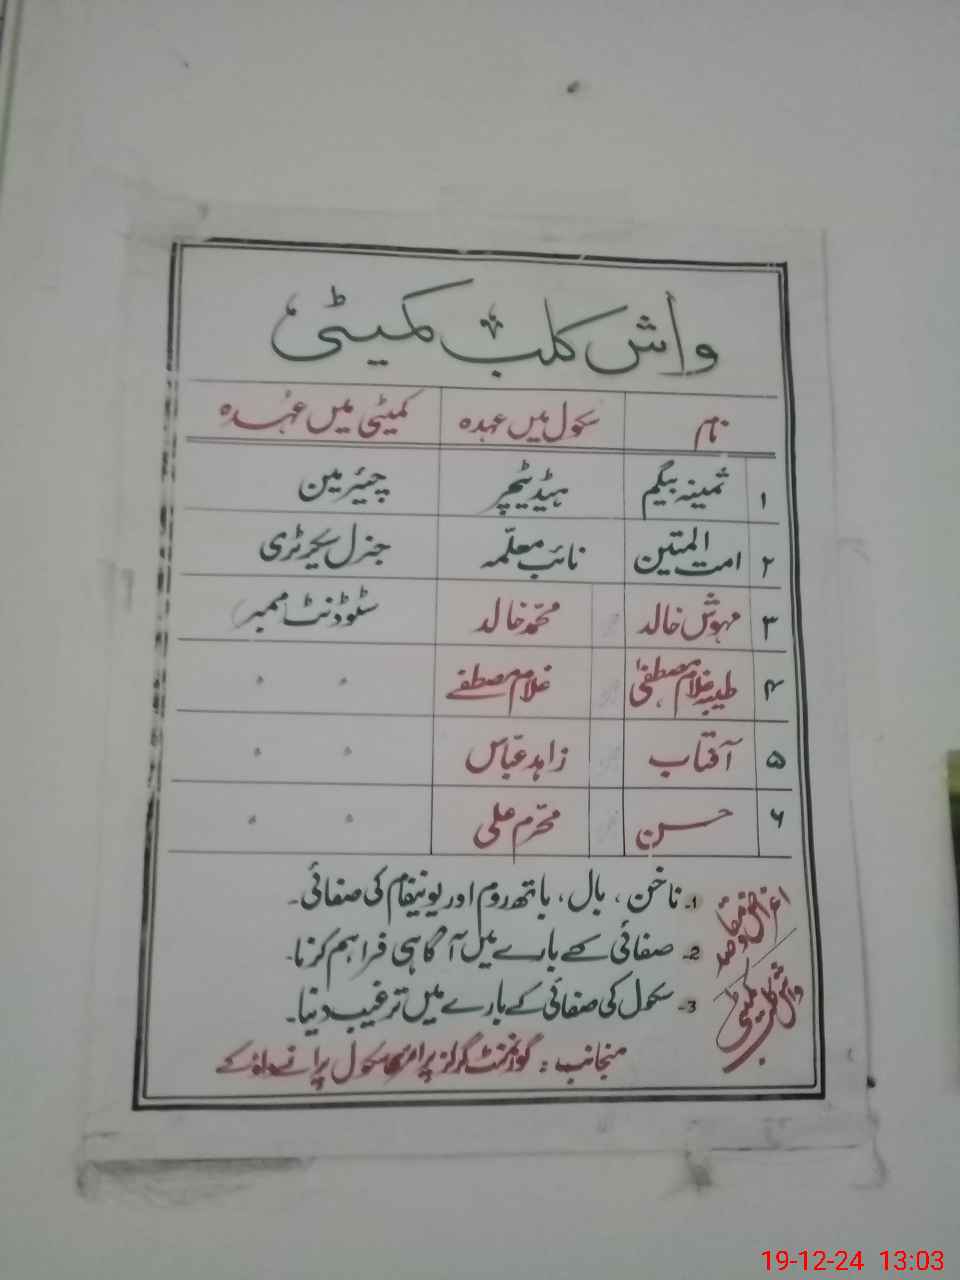 واش کلب کمیٹی
نام سکول میں عہدہ کمیٹی میں عہدہ
۱ ثمینہ بیگم ہیڈ ٹیچر چیئرمین
۲ امت المتین نائب معلّمہ جنرل سیکرٹری
۳ مہوش خالد محمد خالد سٹوڈنٹ ممبر
۴ طیبہ غلام مصطفیٰ غلام مصطفے " "
۵ آفتاب زاہد عباس " "
۶ حسن محرم علی " "
اغراض و مقاصد
واش کلب کمیٹی
1۔ ناخن، بال، باتھ روم اور یونیفام کی صفائی۔
2۔ صفائی کے بارے میں آگاہی فراہم کرنا۔
3۔ سکول کی صفائی کے بارے میں ترغیب دینا۔
منجانب : گورنمنٹ گرلز پرائمری سکول پرانے
19-12-24 13:03